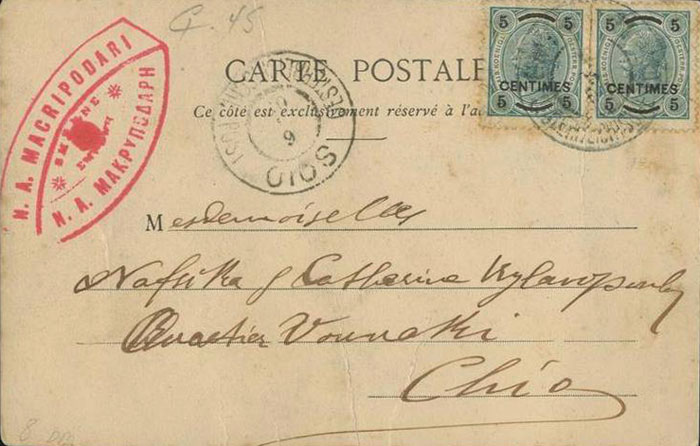 G. 45
N. A. MACRIPODARI
SMYRNE
Σμύρνη
Ν. Α. ΜΑΚΡΥΠΟΔΑΡΗ
SCIO
9
5 5
CENTIMES
5 5
5 5
CENTIMES
5 5
CARTE POSTALE
Ce côté est exclusivement réservé à l'a
Mesdemoiselles
Nafsika & Catherine
Quartier Vounaki
Chio
8